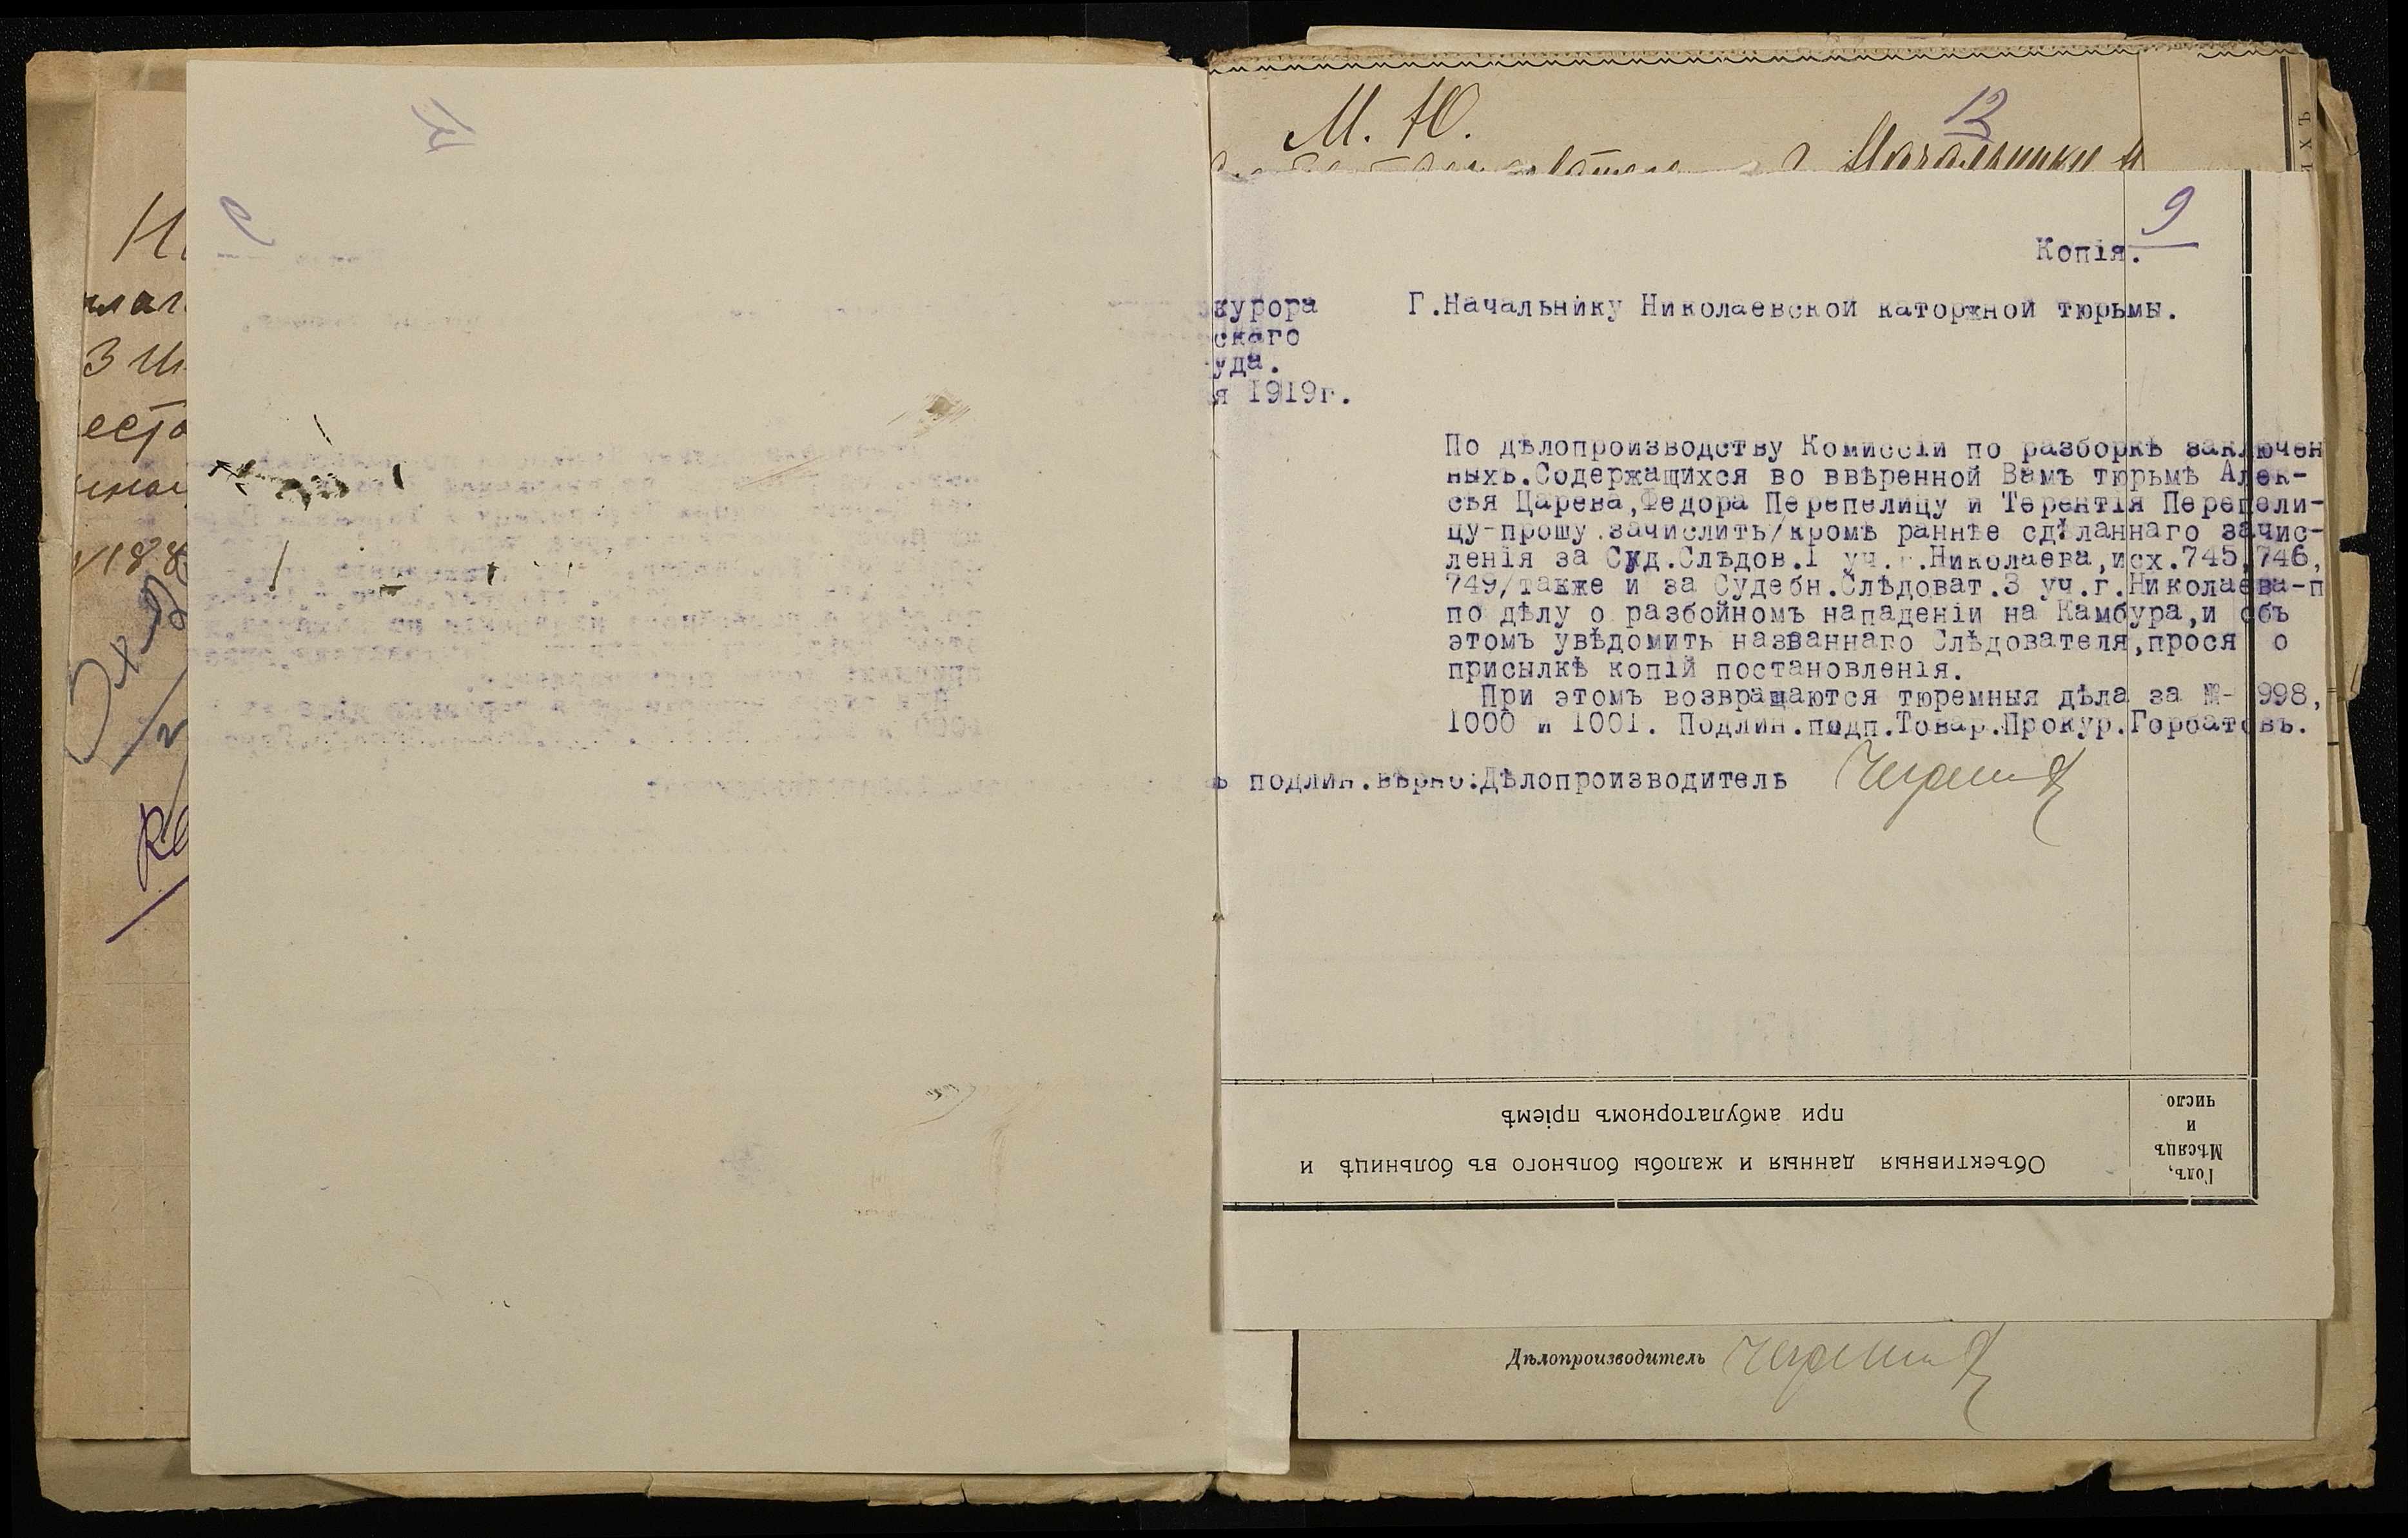 М. Ю.
12
Начальнику
9
Копія.
курора
скаго
уда.
я 1919г.
Г.Начальнику Николаевской каторжной тюрьмы.
По дѣлопроизводству Комиссіи по разборкѣ заключен
ныхъ.Содержащихся во ввѣренной Вамъ тюрьмѣ Алек-
сѣя Царева,Федора Перепелицу и Терентія Перепели-
цу-прошу зачислить/кромѣ раннѣе сдѣланнаго зачис-
ленія за Суд.Слѣдов.1 уч.г.Николаева,исх.745,746,
749/также и за Судебн.Слѣдоват.3 уч.г.Николаева-п
по дѣлу о разбойномъ нападеніи на Камбура,и объ
этомъ увѣдомить названнаго Слѣдователя,прося о
присылкѣ копій постановленія.
При этомъ возвращаются тюремныя дѣла за №- 998,
1000 и 1001. Подлин.подп.Товар.Прокур.Горбатовъ.
ъ подлин.вѣрно:Дѣлопроизводитель
Годъ,
Мѣсяцъ
и
число
Объективныя данныя и жалобы больного въ больницѣ и
при амбулаторномъ пріемѣ
Дѣлопроизводитель